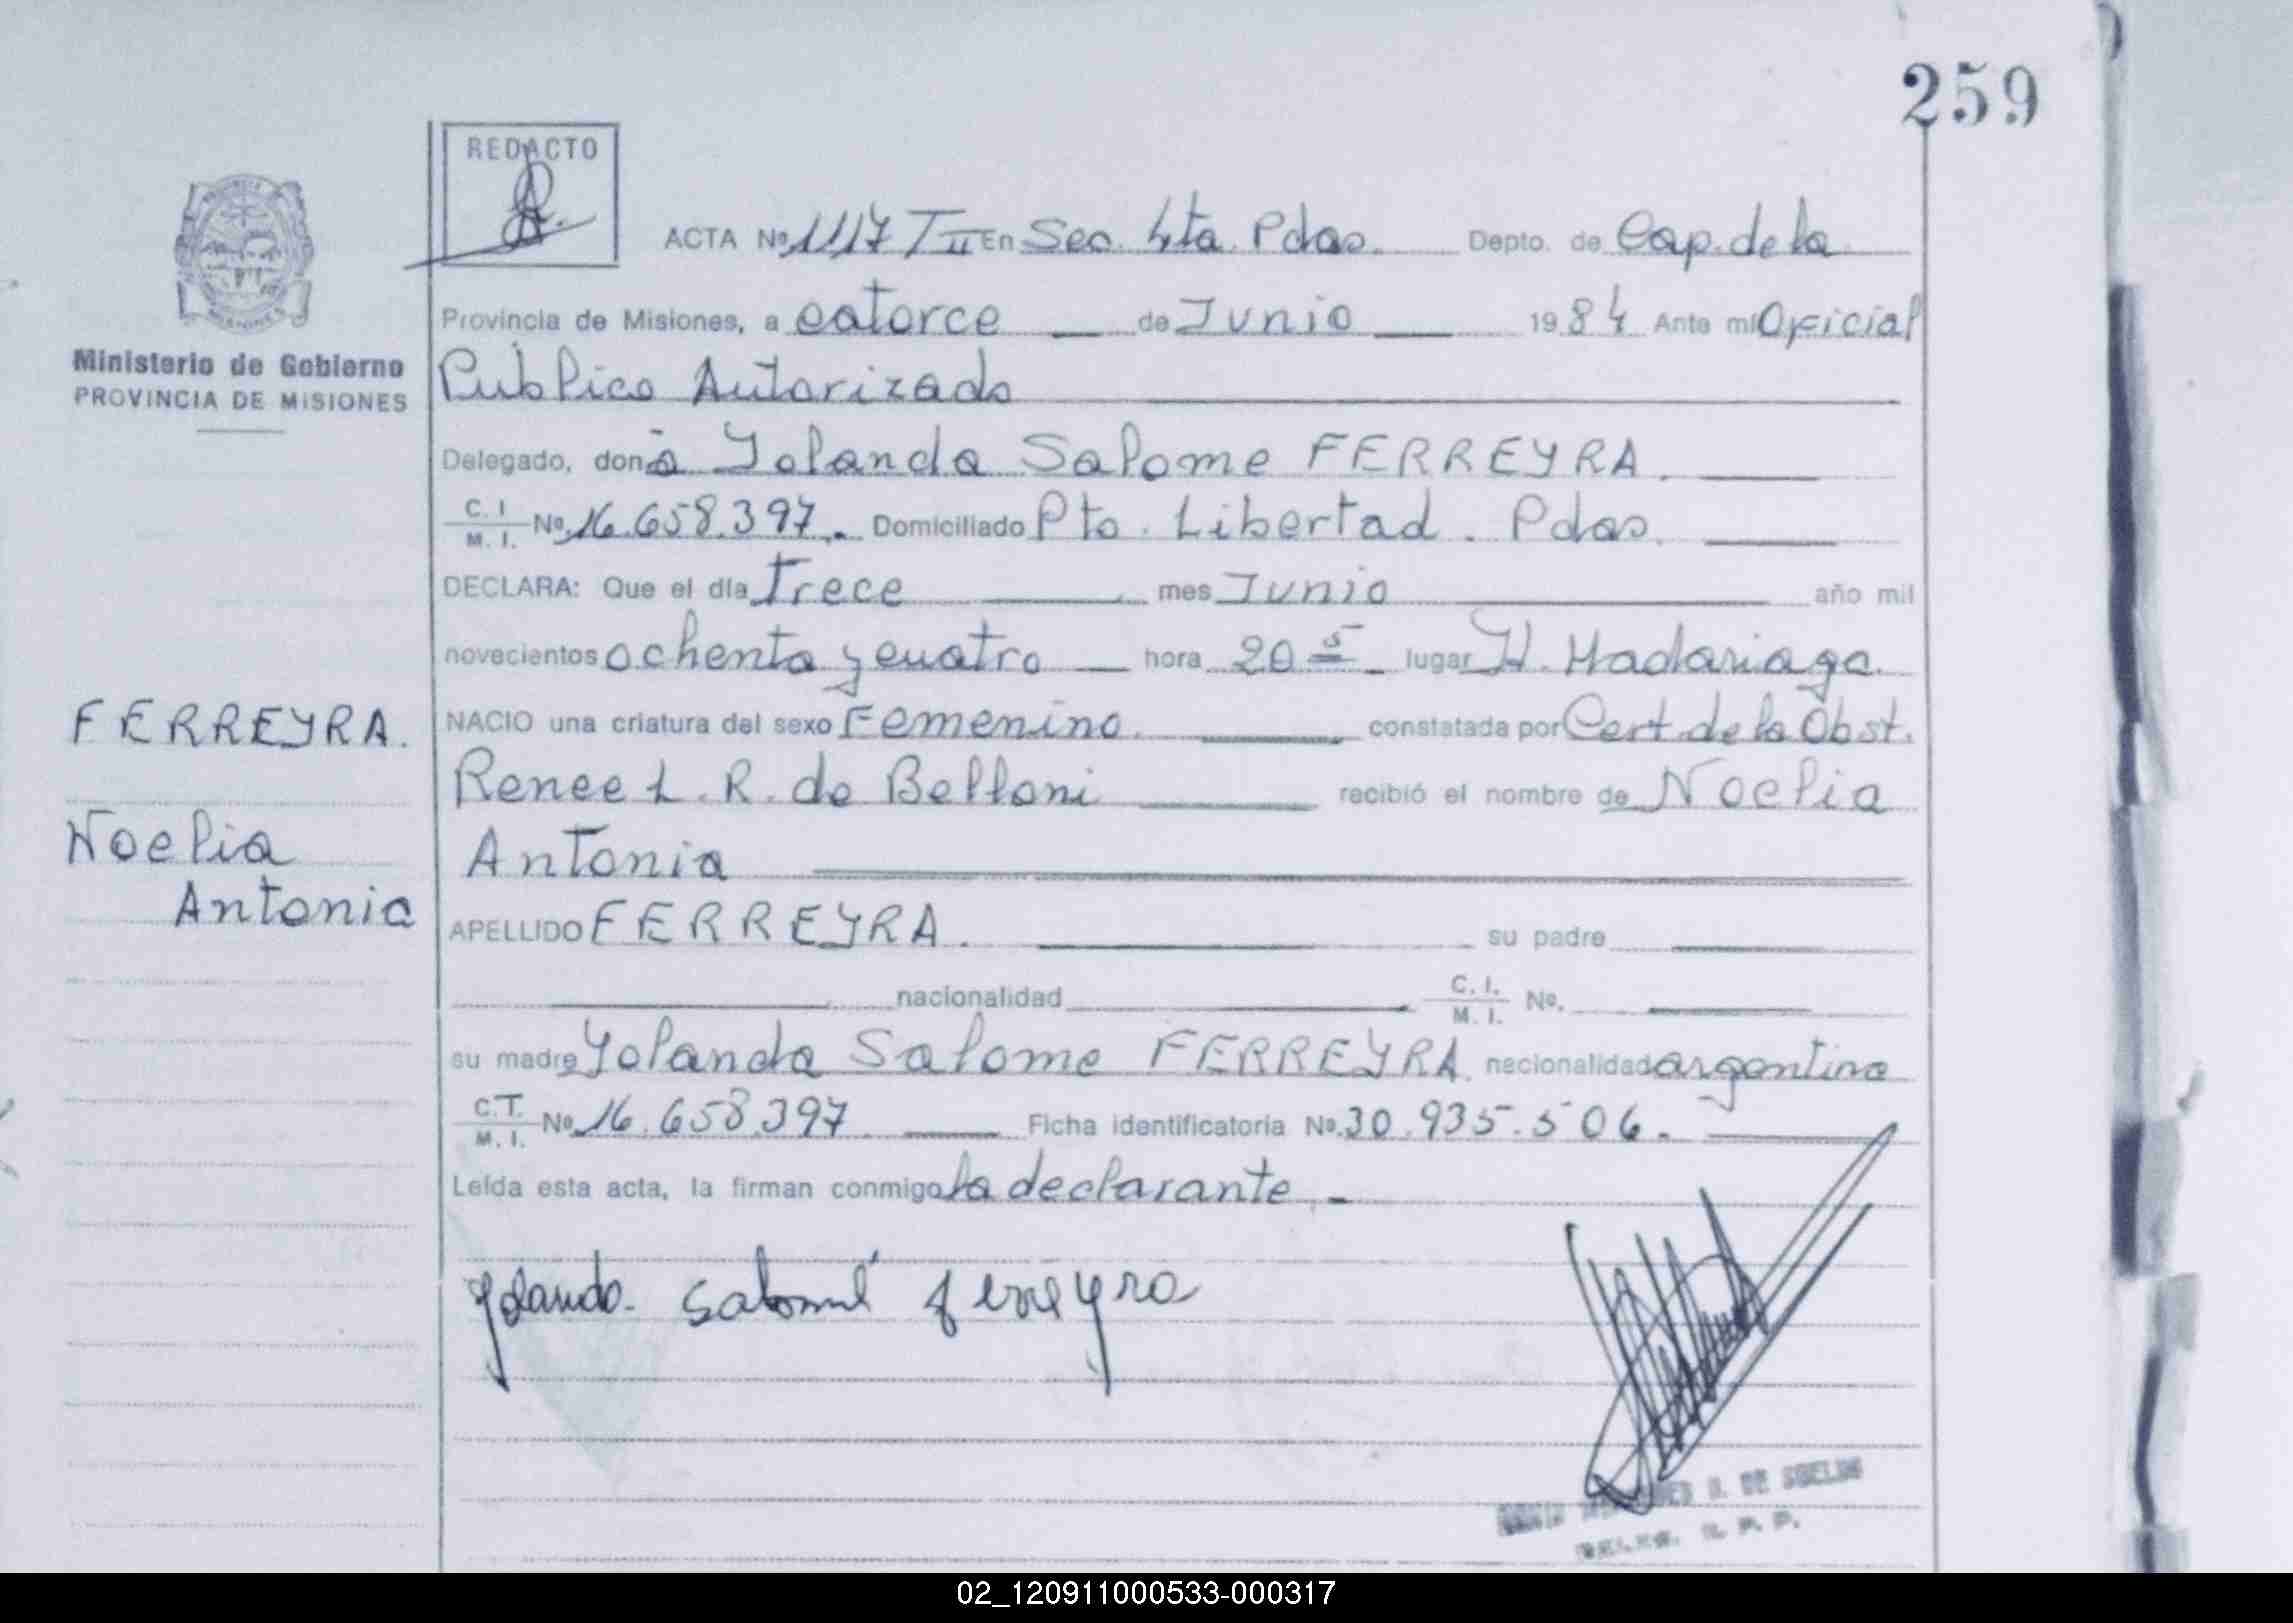 259
REDACTO
ACTA Nº 1117 T II En Sec. 4ta. Pdas. Depto. de Cap. de la
Provincia de Misiones, a catorce de Junio 1984 Ante mi Oficial
Ministerio de Gobierno
PROVINCIA DE MISIONES
Publico Autorizado
Delegado, doña Yolanda Salome FERREYRA.
C. I. M. I. Nº 16.658.397. Domiciliado Pto. Libertad. Pdas.
DECLARA: Que el día Trece mes Junio año mil
novecientos ochenta y cuatro hora 20 5 lugar H. Madariaga.
FERREYRA.
NACIO una criatura del sexo Femenino. constatada por Cert. de la Obst.
Renee L. R. de Belloni recibió el nombre de Noelia
Noelia
Antonia
Antonia
APELLIDO FERREYRA. su padre
nacionalidad C. I. M. I. Nº.
su madre Yolanda Salome FERREYRA. nacionalidad argentina
C.T. M. I. Nº 16.658.397 Ficha identificatoria Nº. 30.935.506.
Leída esta acta, la firman conmigo la declarante.
Yolanda Salomé Ferreyra
DE
02_120911000533-000317